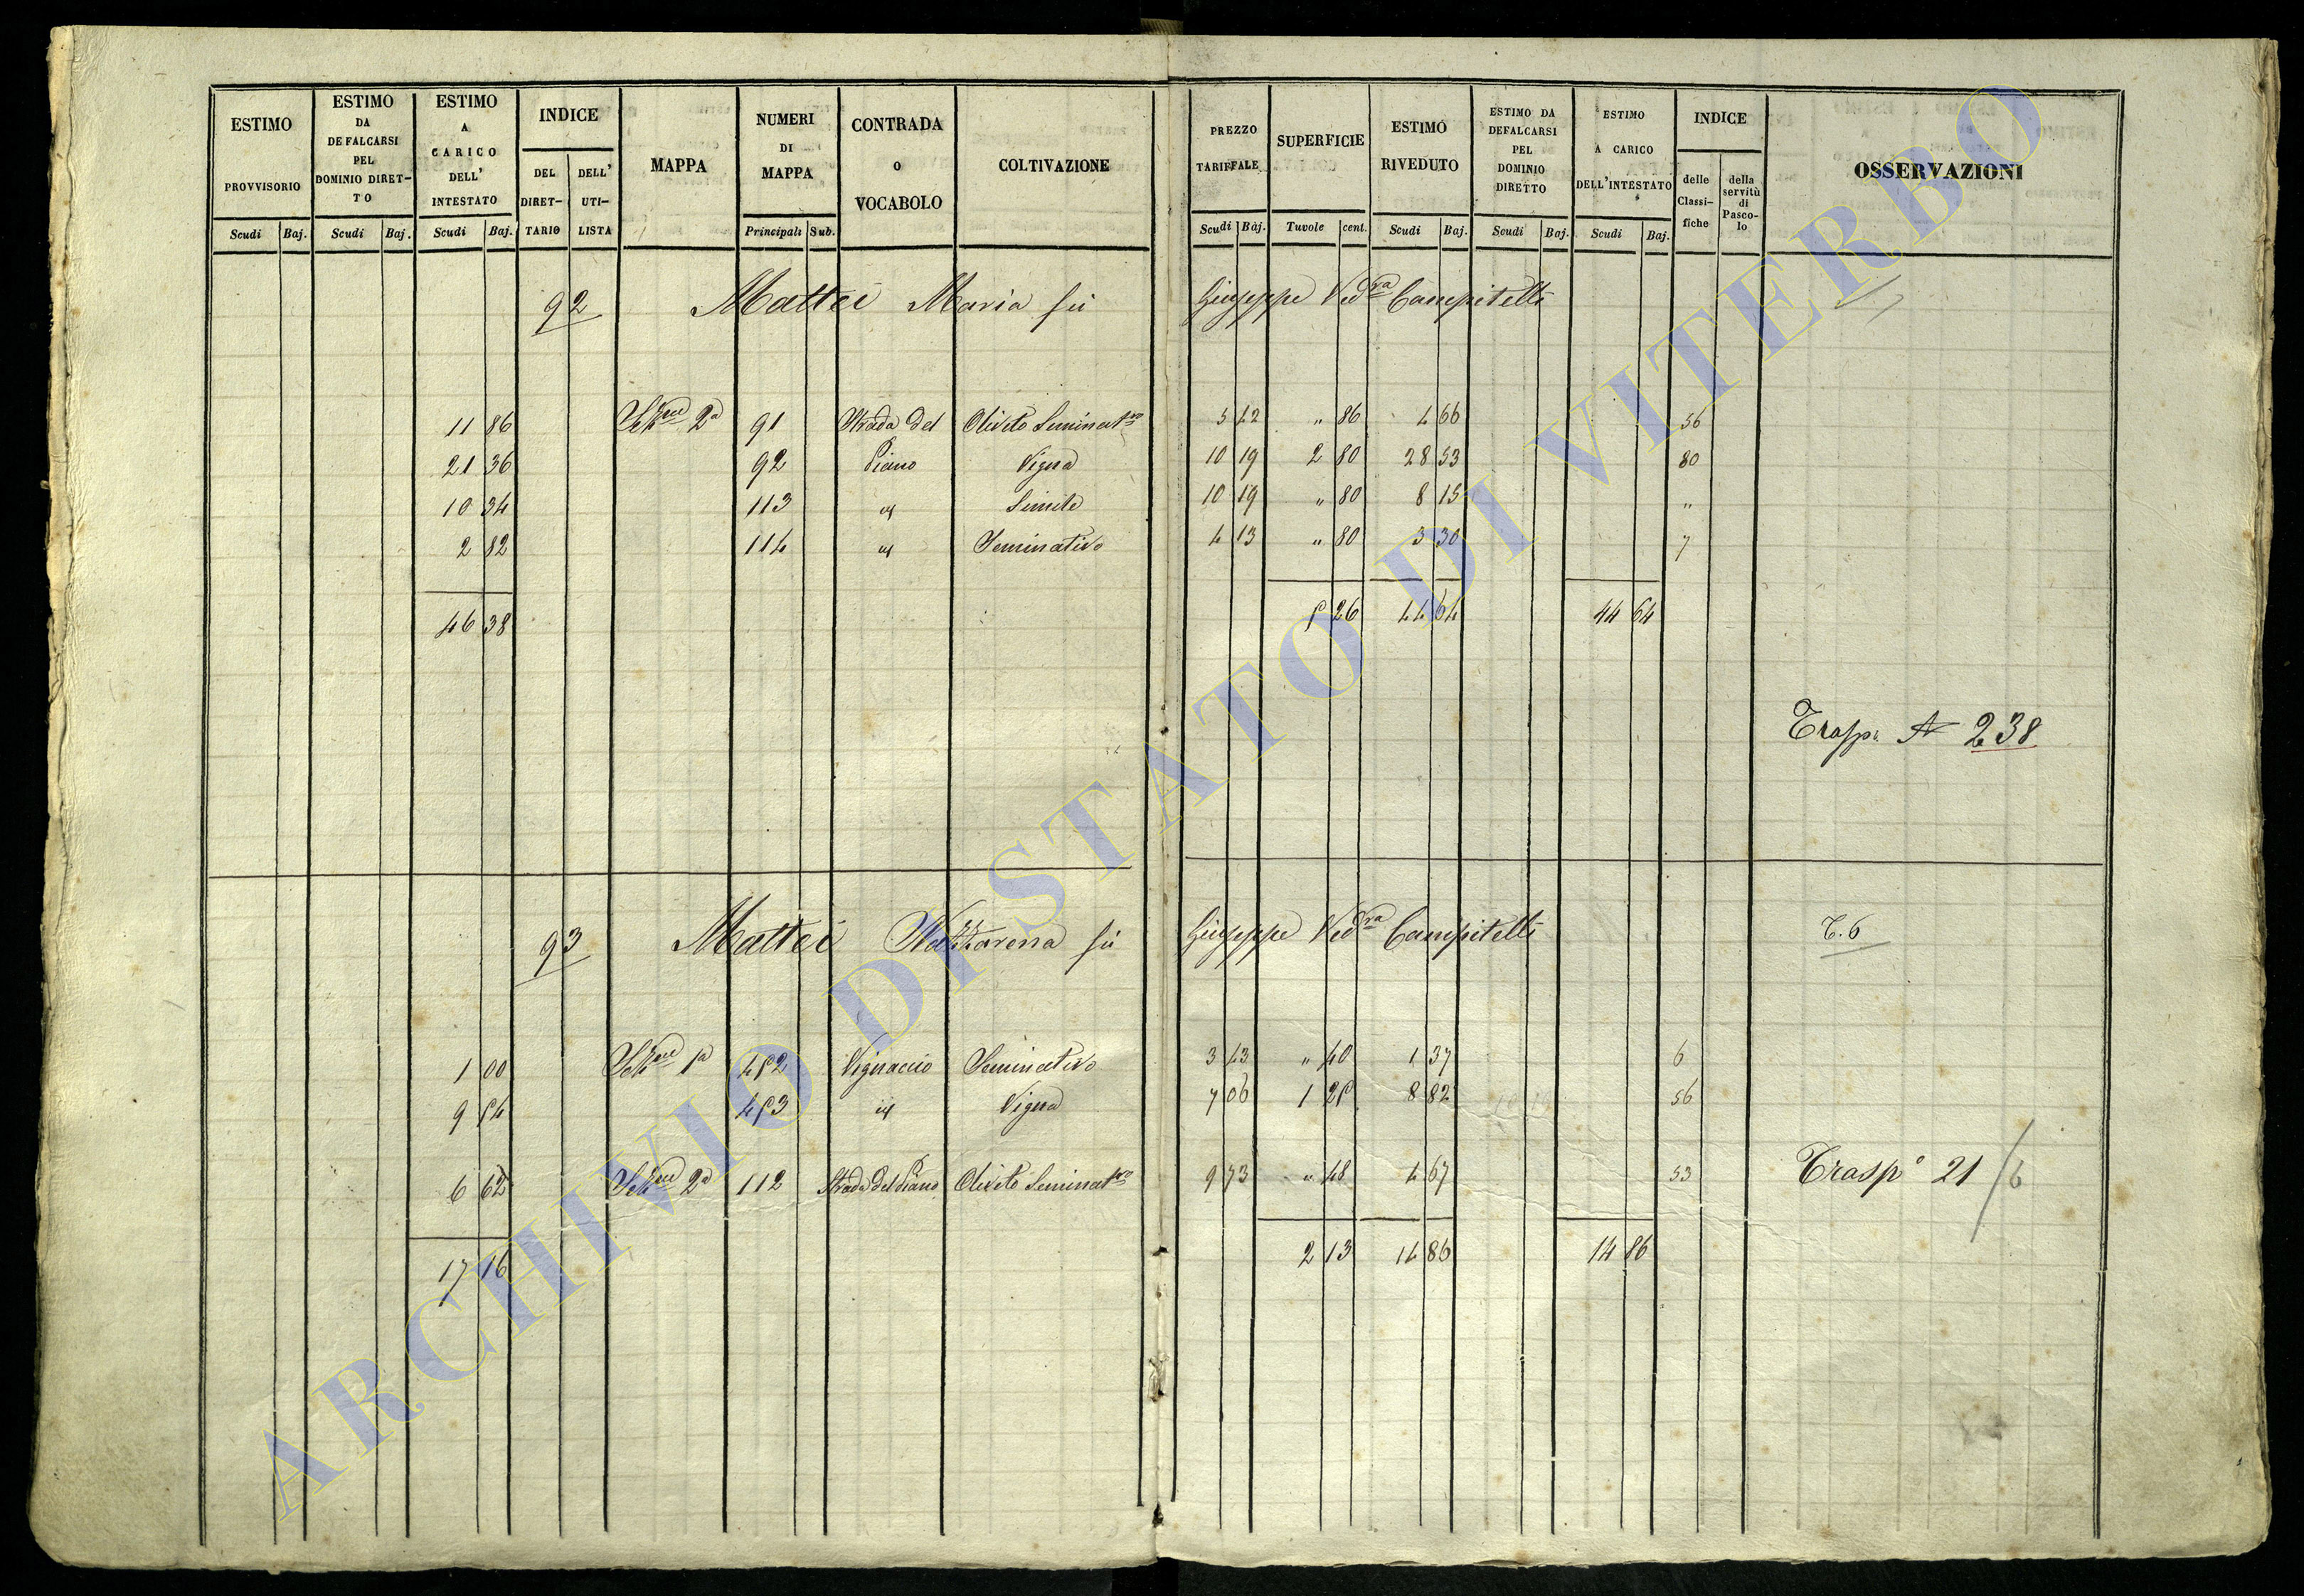 ESTIMO PROVVISORIO
Scudi Baj.
ESTIMO DA DEFALCARSI PEL DOMINIO DIRET-TO
Scudi Baj.
ESTIMO A CARICO DELL' INTESTATO
Scudi Baj.
INDICE
DEL DIRET-TARIO
DELL' UTI-LISTA
MAPPA
NUMERI DI MAPPA
Principali Sub.
CONTRADA O VOCABOLO
COLTIVAZIONE
PREZZO TARIFFALE
Scudi Baj.
SUPERFICIE
Tavole cent.
ESTIMO RIVEDUTO
Scudi Baj.
ESTIMO DA DEFALCARSI PEL DOMINIO DIRETTO
Scudi Baj.
ESTIMO A CARICO DELL'INTESTATO
Scudi Baj.
INDICE
delle Classi-fiche
della servitù di Pasco-lo
OSSERVAZIONI
92 Mattei Maria fu Giuseppe Ved.ra Campitelli
11 86 Sez.ne 2a 91 Strada del Oliveto Seminat.vo 5 42 " 86 4 66 56
21 36 92 Piano Vigna 10 19 2 80 28 53 80
10 34 113 id Simile 10 19 " 80 8 15 "
2 82 114 id Seminativo 4 13 " 80 3 30 7
46 38 5 26 44 64 44 64
Trasp. N 238
93 Mattei Nazzarena fu Giuseppe Ved.ra Campitelli
T. 6
1 00 Sez.ne 1a 452 Vignaccio Seminativo 3 43 " 40 1 37 6
9 54 453 id Vigna 7 06 1 25 8 82 56
6 62 Sez.ne 2a 112 Strada del Piano Oliveto Seminat.vo 9 73 " 48 4 67 53
Trasp.o 21/6
17 16 2 13 14 86 14 86
ARCHIVIO DI STATO DI VITERBO